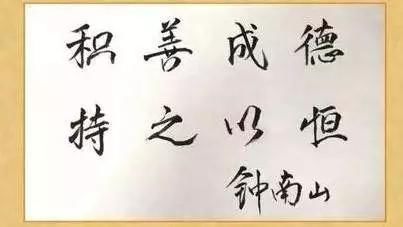 积善成德
持之以恒
钟南山